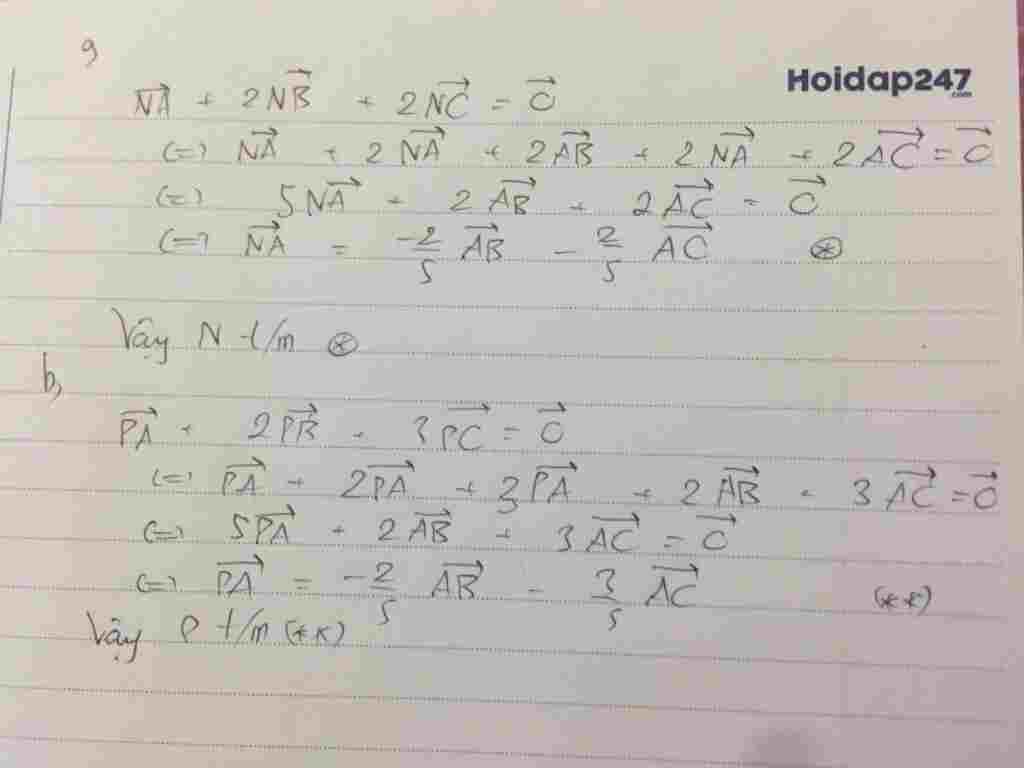 9
Hoidap247
.com
NA⃗ + 2NB⃗ + 2NC⃗ = O⃗
(=) NA⃗ + 2NA⃗ + 2AB⃗ + 2NA⃗ + 2AC⃗ = O⃗
(=) 5NA⃗ + 2AB⃗ + 2AC⃗ = O⃗
(=) NA⃗ = -2/5 AB⃗ - 2/5 AC⃗ ⊛
Vậy N t/m ⊛
b,
PA⃗ + 2PB⃗ - 3PC⃗ = O⃗
(=) PA⃗ + 2PA⃗ + 3PA⃗ + 2AB⃗ - 3AC⃗ = O⃗
(=) 5PA⃗ + 2AB⃗ + 3AC⃗ = O⃗
(=) PA⃗ = -2/5 AB⃗ - 3/5 AC⃗ (**)
Vậy P t/m (**)